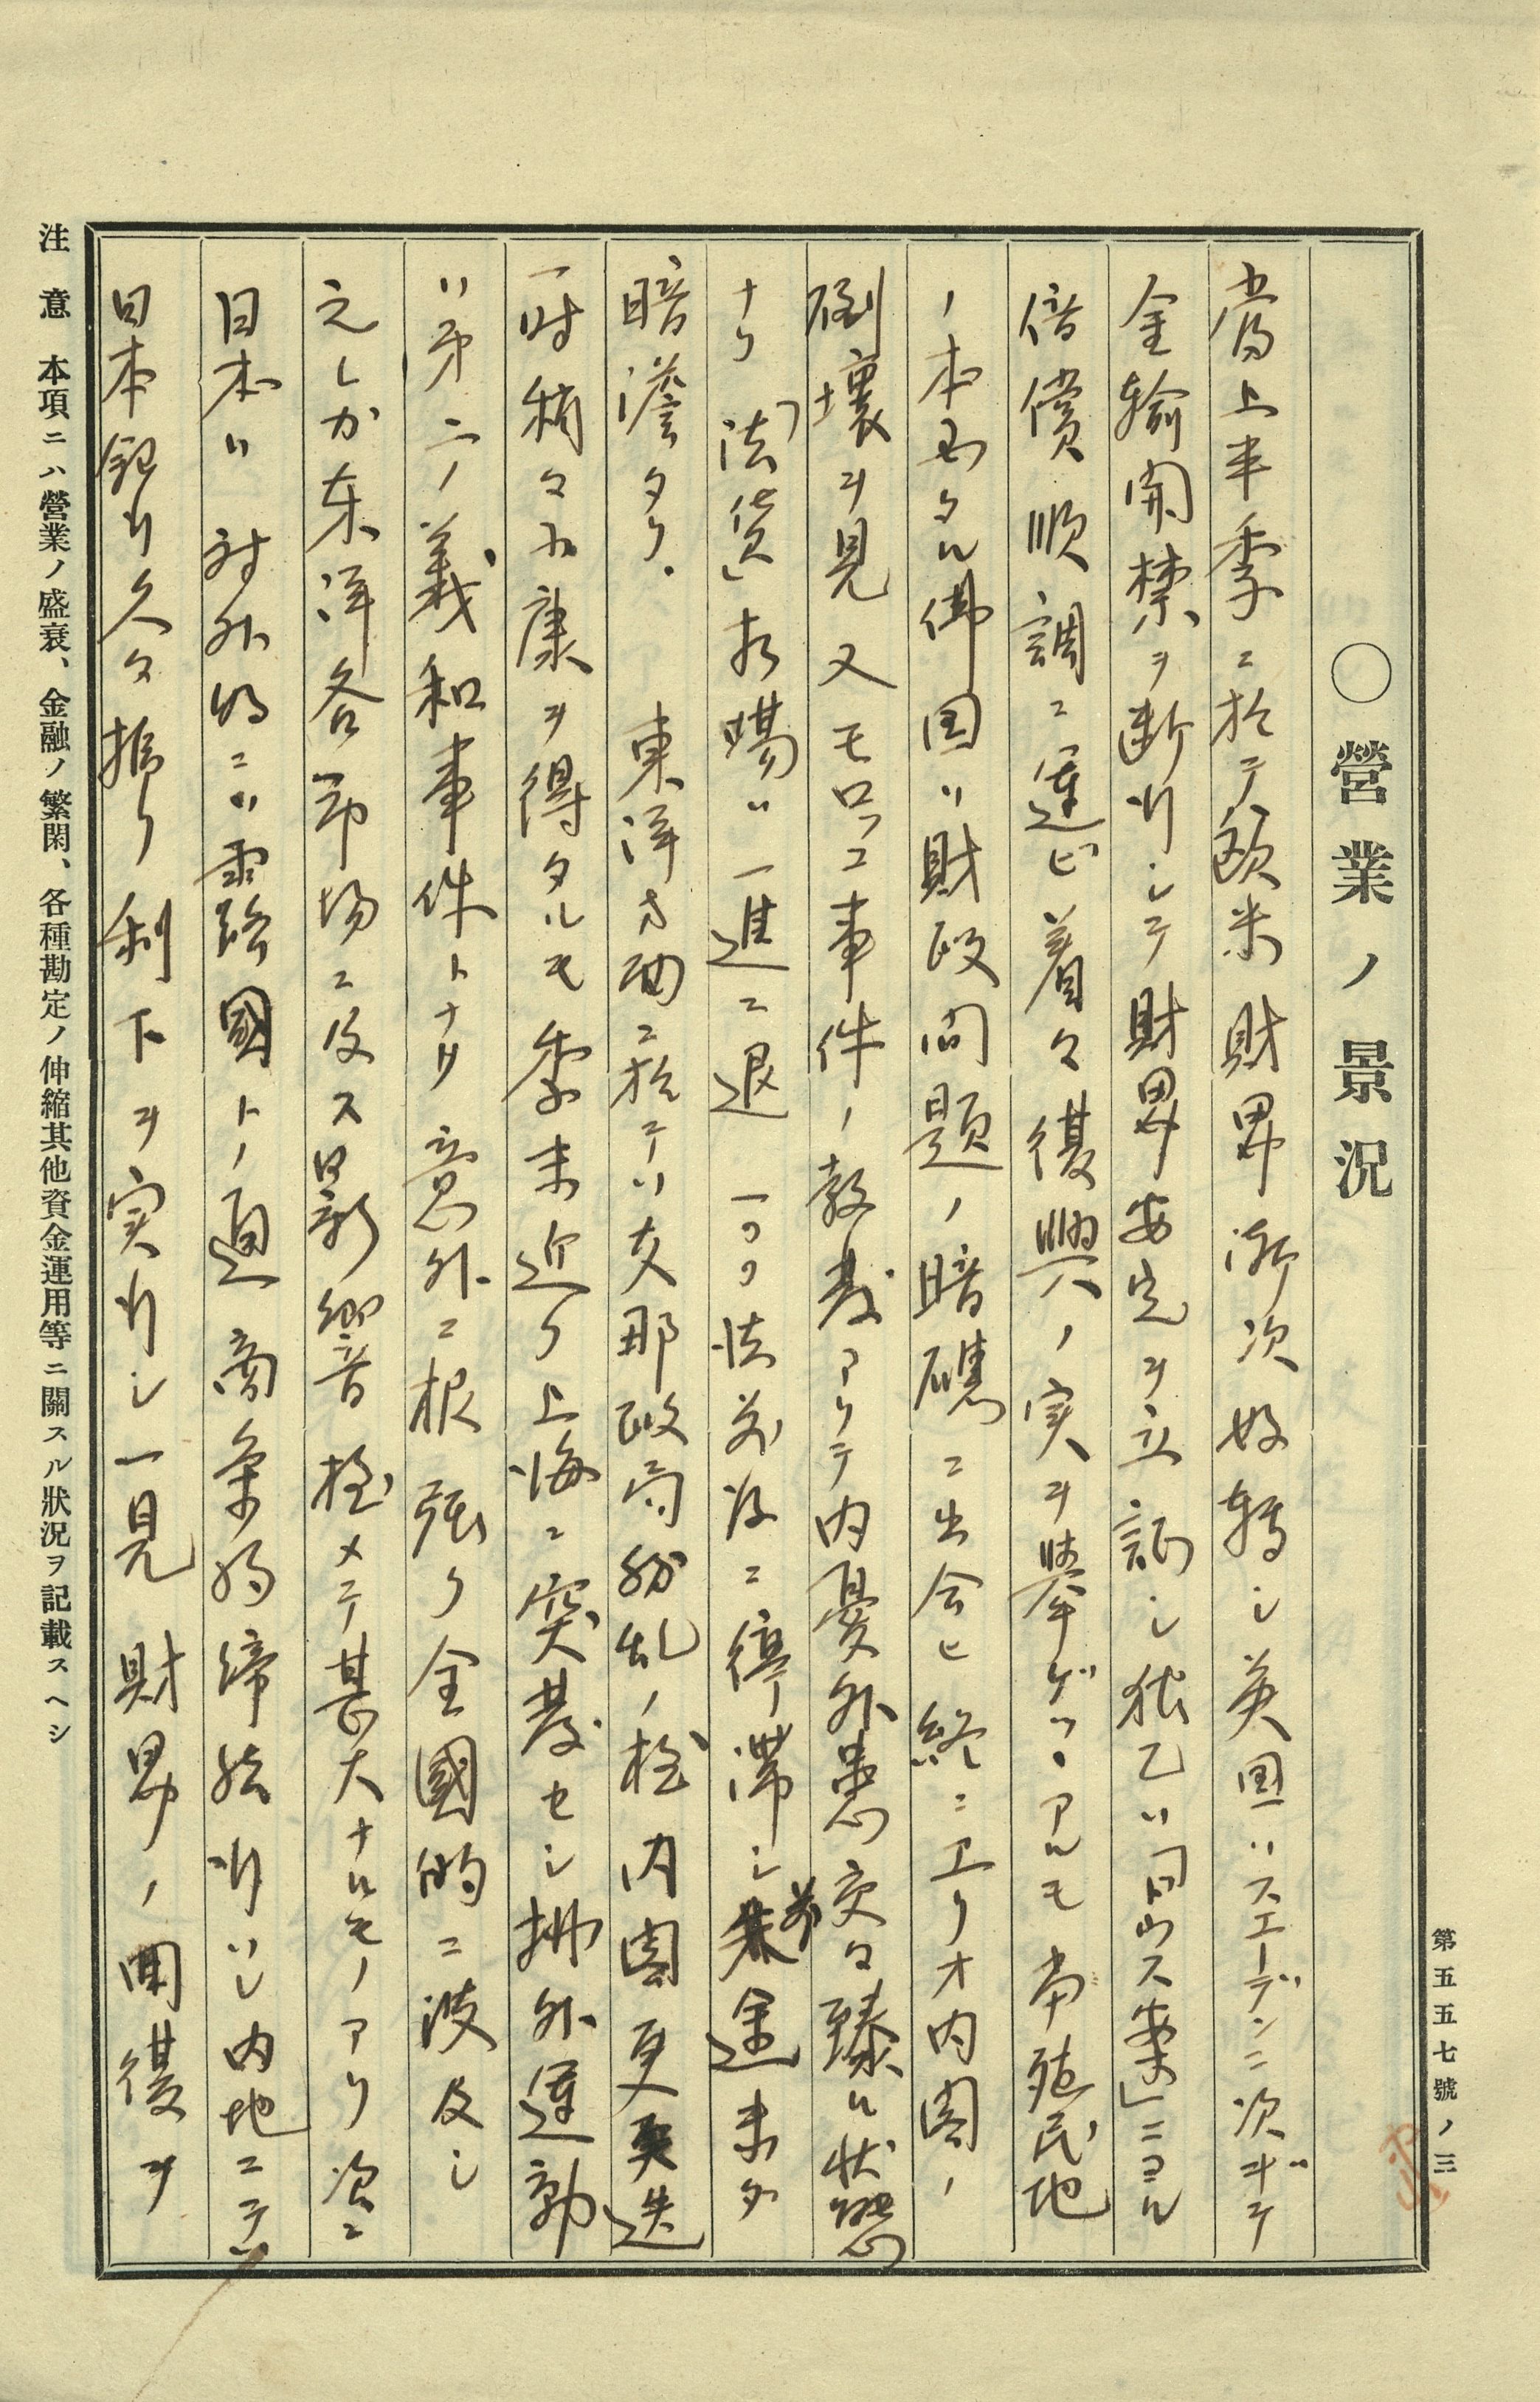 第五五七號ノ三
〇營業ノ景況
當上半季ニ於テ欧米財界漸次好轉シ英国ハスエーデンニ次ギテ
金輸開禁ヲ断行シテ財界安定ヲ立証シ独乙ハ「ドウス案」ニヨル
倍償順調ニ運ビ着々復興ノ実ヲ挙ゲツヽアルモ当殖民地
ノ本国タル佛国ハ財政問題ノ暗礁ニ出会ヒ終ニエリオ内閣ノ
倒壊ヲ見又モロッコ事件ノ勃発アリテ内憂外患交々臻ル状態
ナリ「法貨」相場ハ一進ニ退一〇〇法前後ニ停滞シ前途未タ
暗澹タリ.　東洋方面ニ於テハ支那政局紛乱ノ極内閣更迭
一時稍々小康ヲ得タルモ季末近ク上海ニ突発セシ排外運動
ハ第二ノ義和事件トナリ意外ニ根強ク全國的ニ波及シ
之レカ東洋各市場ニ及ス影響極メテ甚大ナルモノアリ次ニ
日本ハ対外的ニハ露路國トノ通商条約締結行ハレ内地ニテハ
日本銀行久々振リ利下ヲ実行シ一見財界ノ囬復ヲ
注意　本項ニハ營業ノ盛衰、金融ノ繁閑、各種勘定ノ伸縮其他資金運用等ニ關スル狀況ヲ記載スヘシ